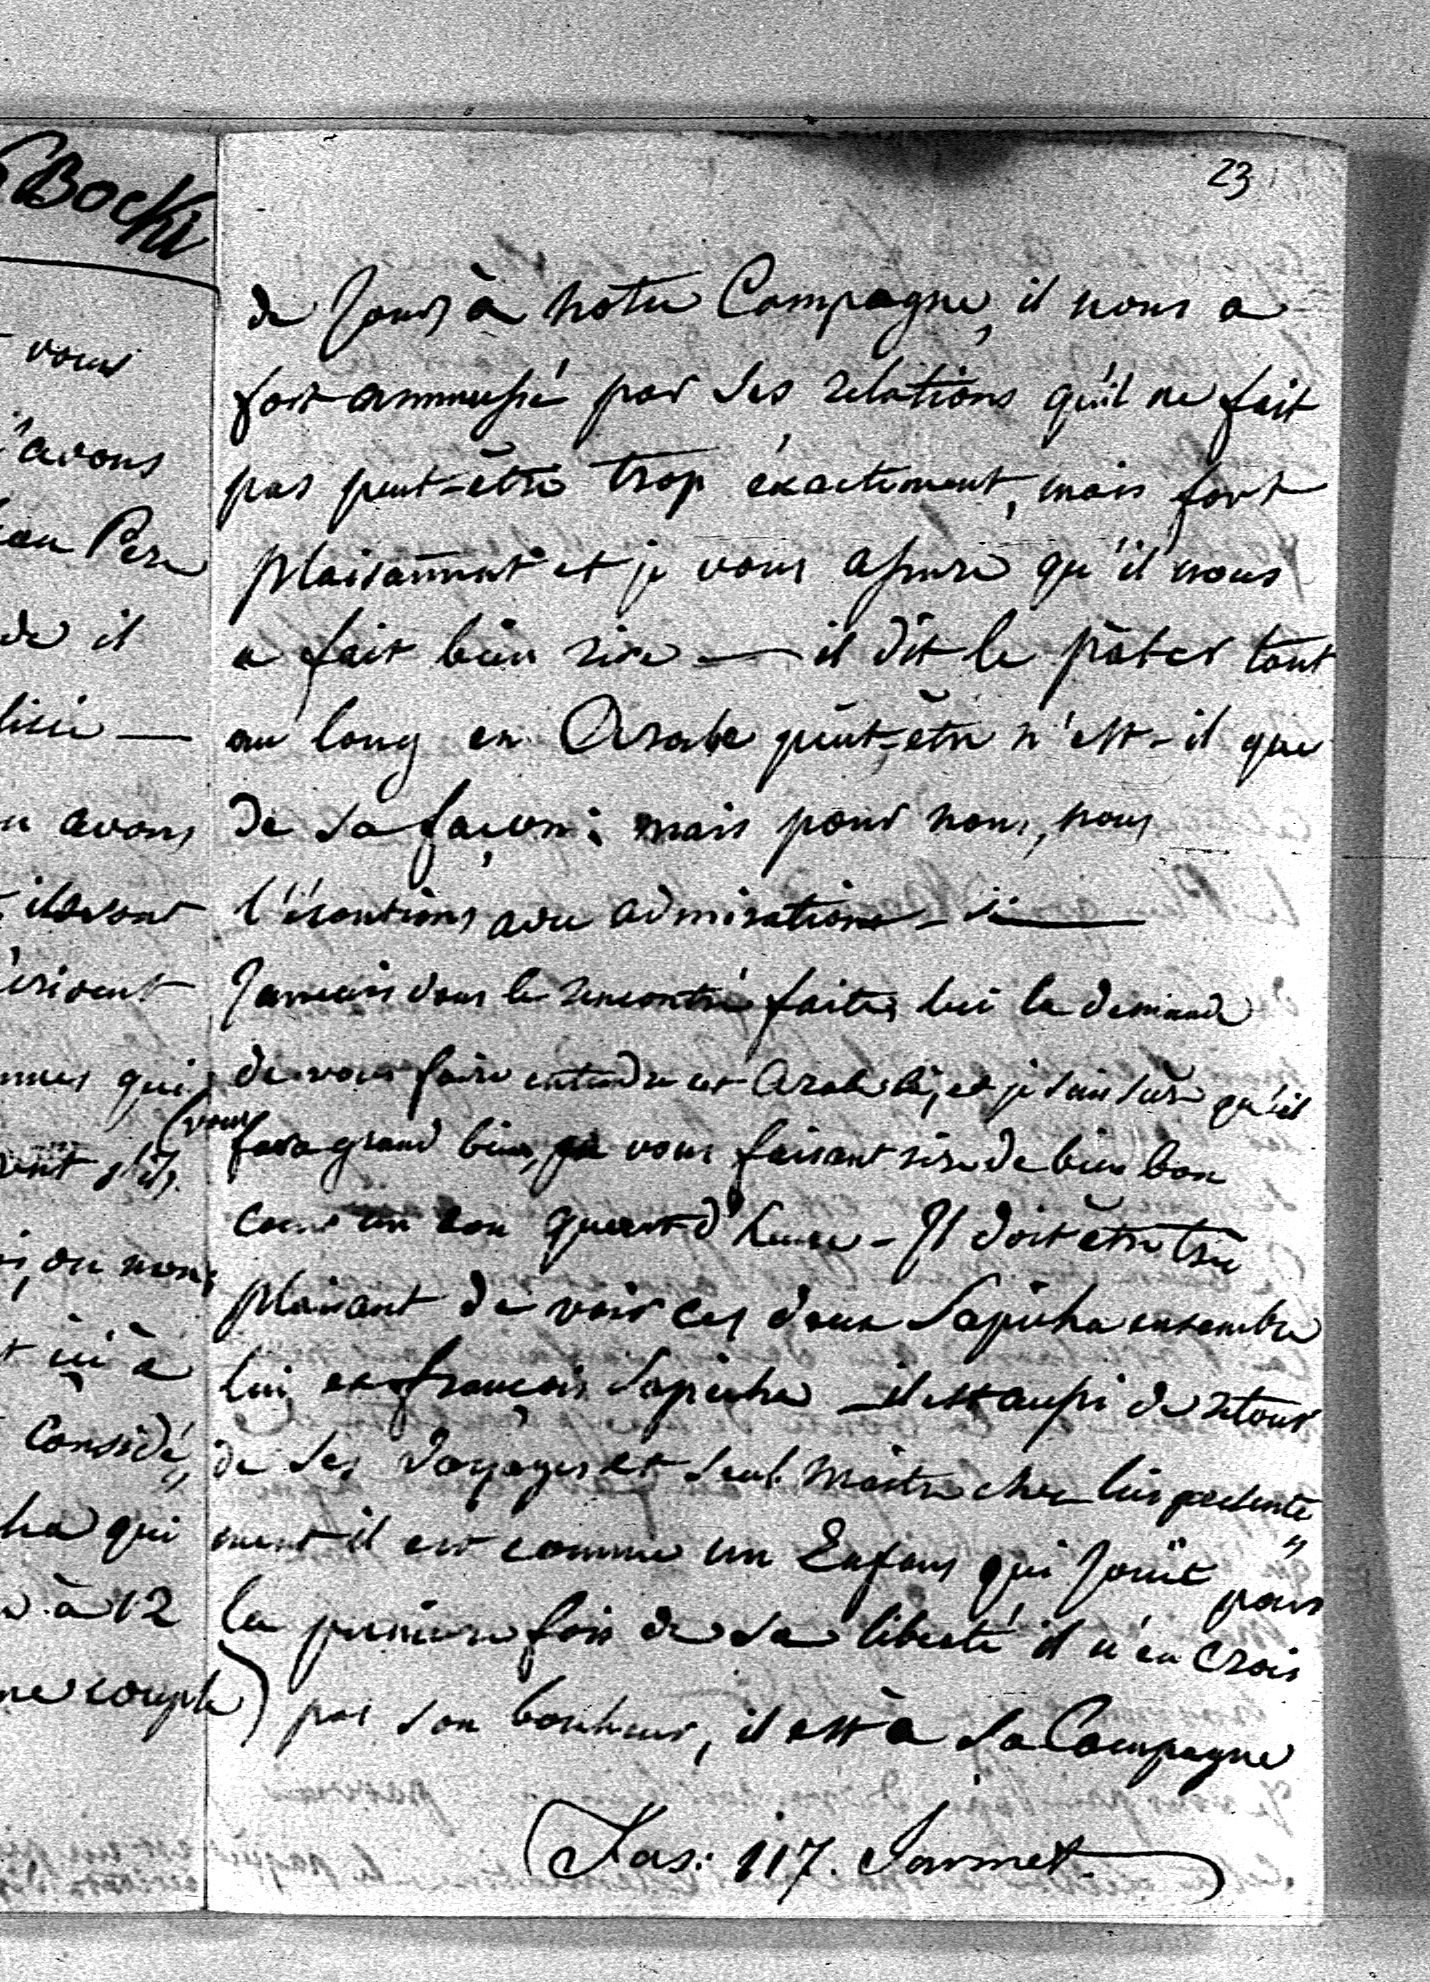 23
Bocki
de Jours à notre Campagne, il nous a
fort ammusié par ses relations qu'il ne fait
pas peut-être trop éxactement, mais fort
plaisamment et je vous assure qu'il nous
a fait bien rire — il dit le pater tout
au long en Arabe peut-être n'est-il que
de sa façon: mais pour nous, nous
l'écoutions avec admiration — si
Jamais vous le rencontré faites lui la demande
de vous faire entendre cet Arabe là, et je suis sûre qu'il
(vous
fera grand bien, vous faisant rire de bien bon
coeur un bon quart d'heure — Il doit être très
plaisant de voir ces deux Sapieha ensemble
lui et françois Sapieha — il est aussi de retour
de ses Voyages et seul Maitre chez lui
ment il est comme un Enfans qui Jouit pour
la première fois de sa liberté il n'en crois
pas son bonheur, il est à sa Campagne
Fas: 117.
vous
avons
Pere
de il
avons
ils sont
écrivent
qui
ou non;
ici à
Considé„
qui
à 12
couple)